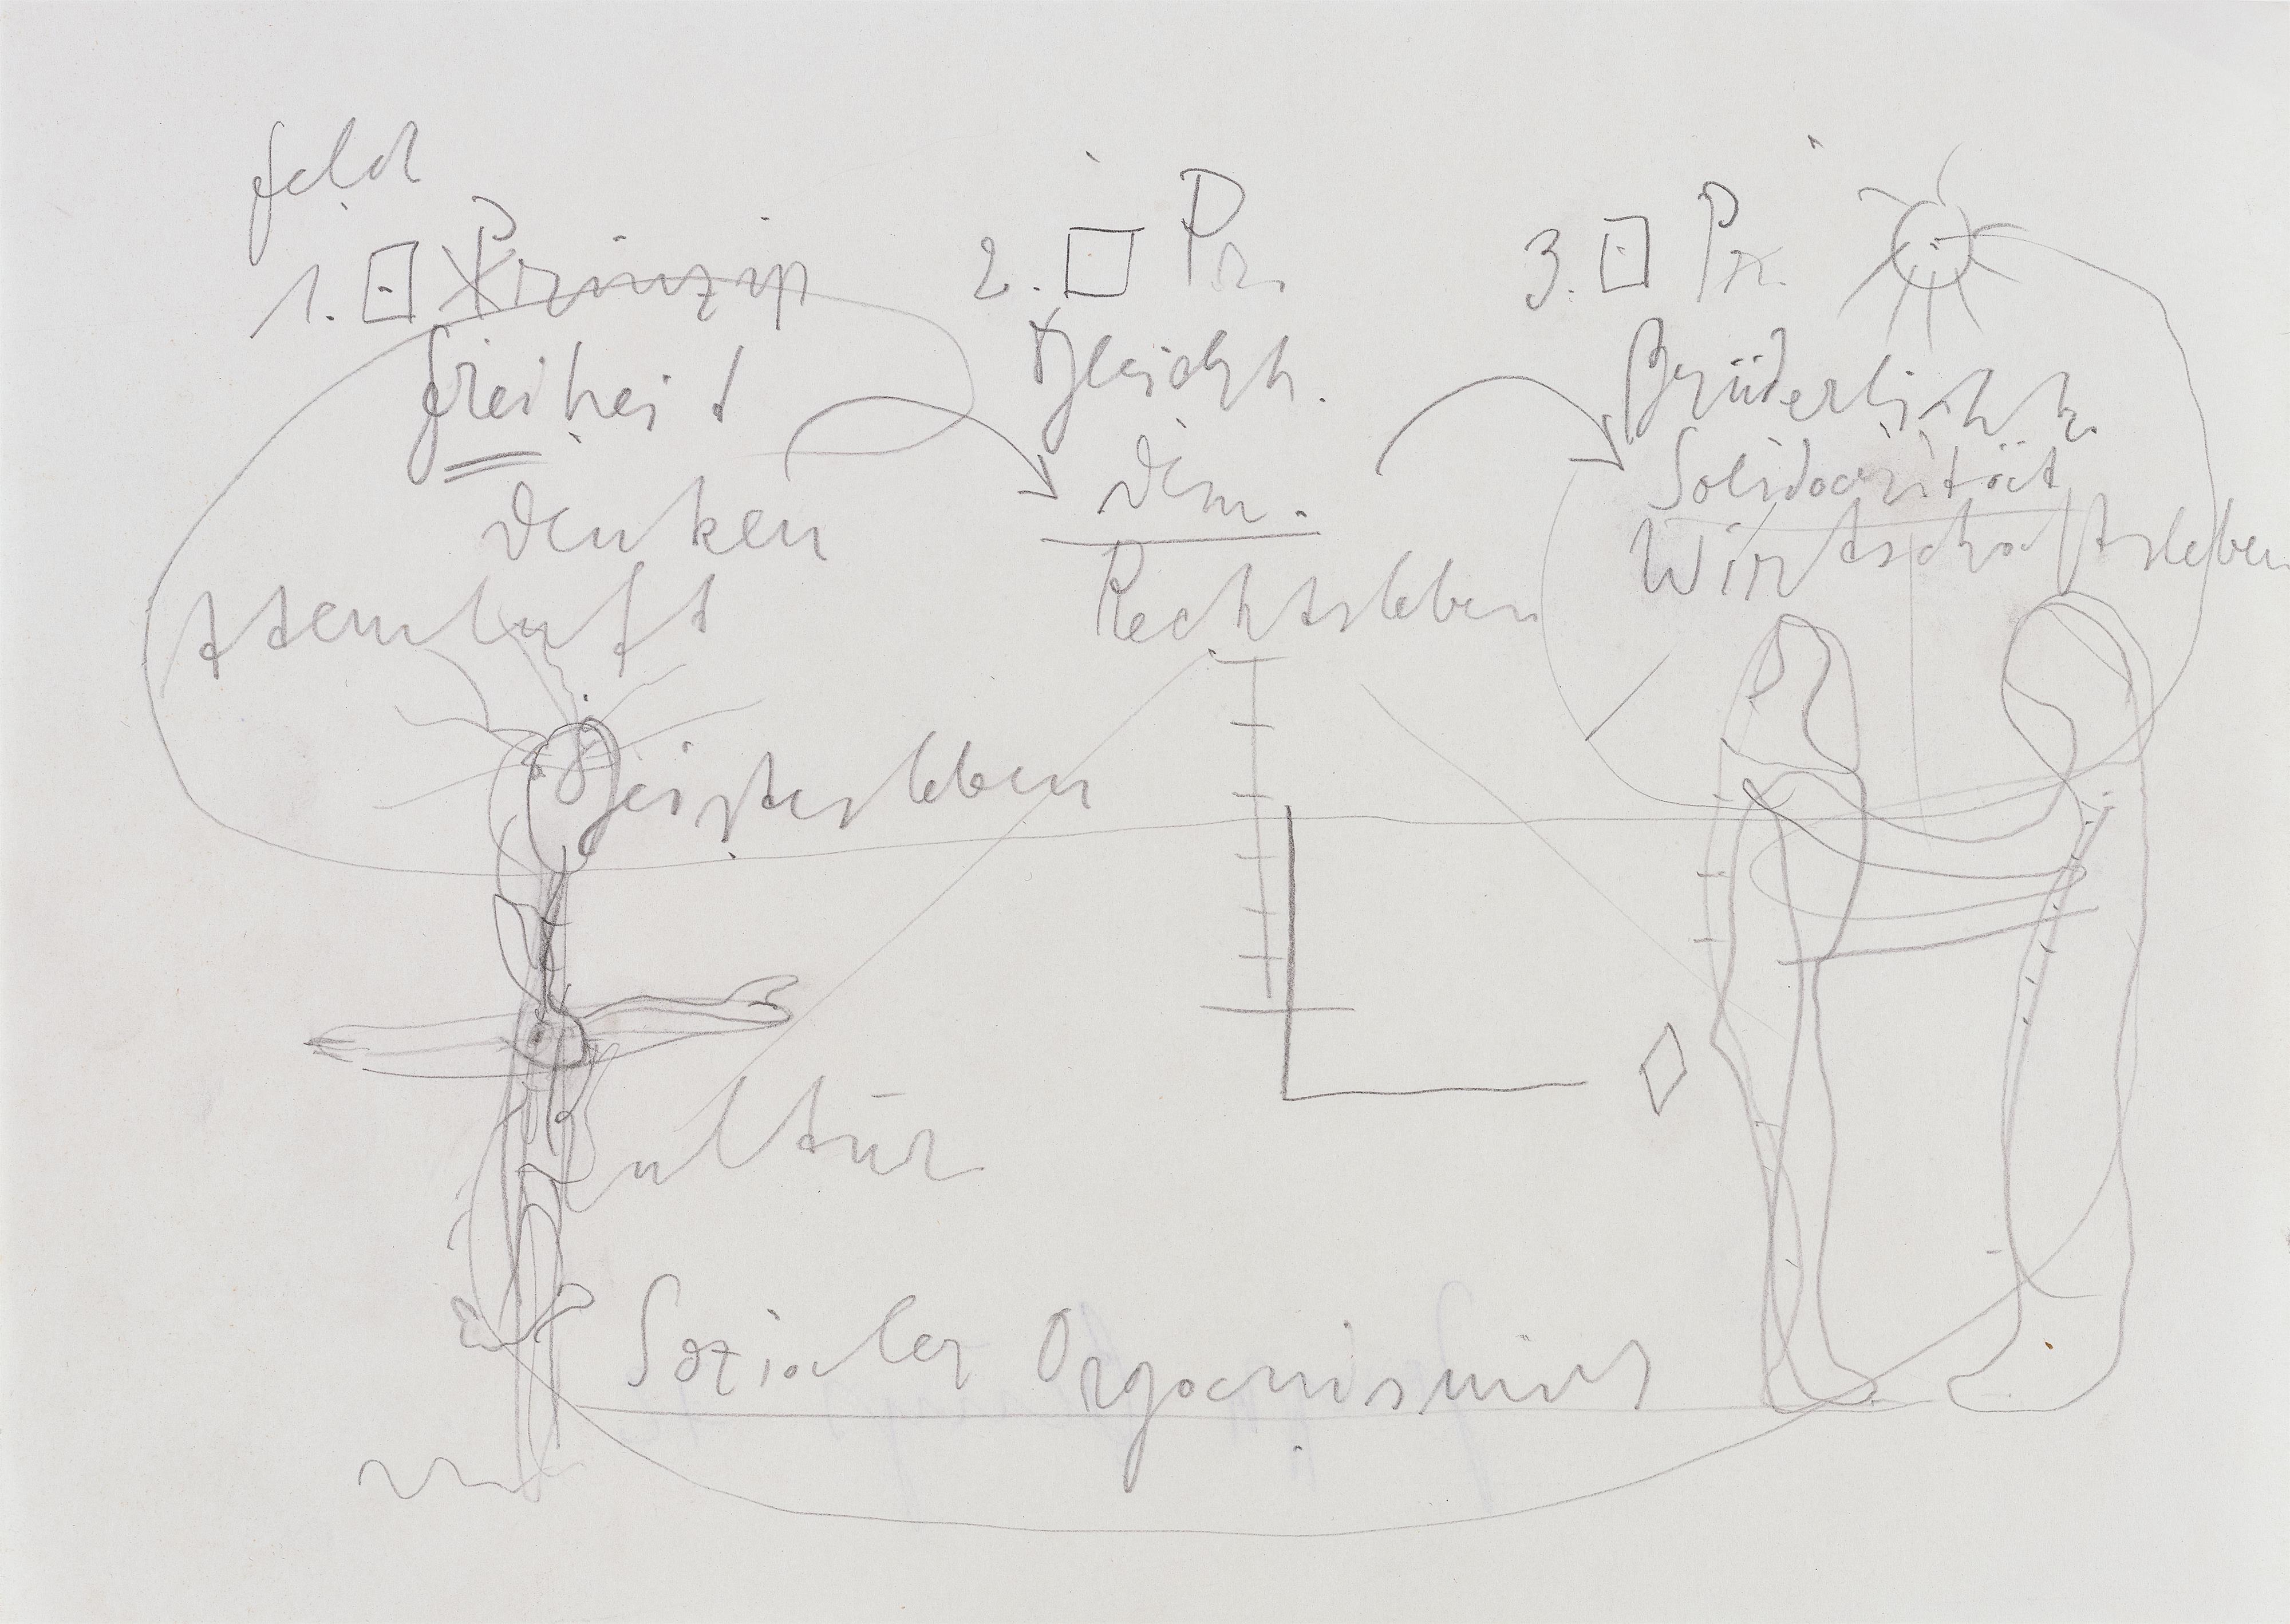 feld
1. Prinzip
2. Pr.
3. Pr.
freiheit
Gleichh.
Brüderlichk.
denken
dem.
Solidarität
Atemluft
Rechtsleben
Wirtschaftsleben
Geistesleben
Kultur
Sozialer Organismus